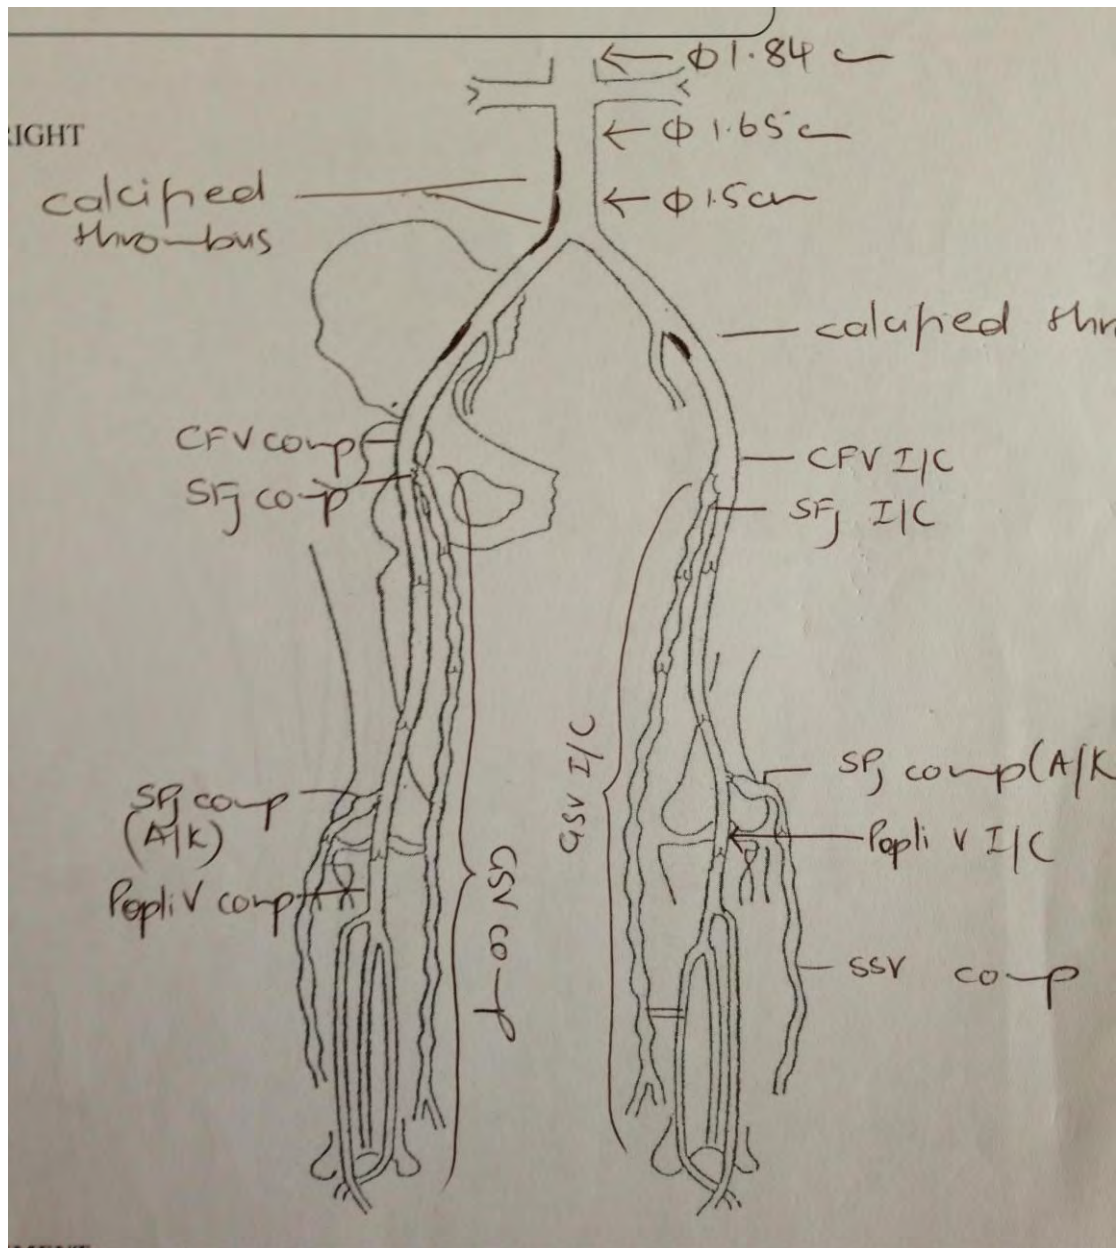 ← Φ 1.84 cm
RIGHT
← Φ 1.65 cm
calcified
thrombus
← Φ 1.5cm
calcified thr
CFV comp
CFV I/C
SFJ comp
SFJ I/C
GSV I/C
SPJ comp (A/K
SPJ comp
(A/K)
Popli V I/C
Popli V comp
GSV comp
SSV comp